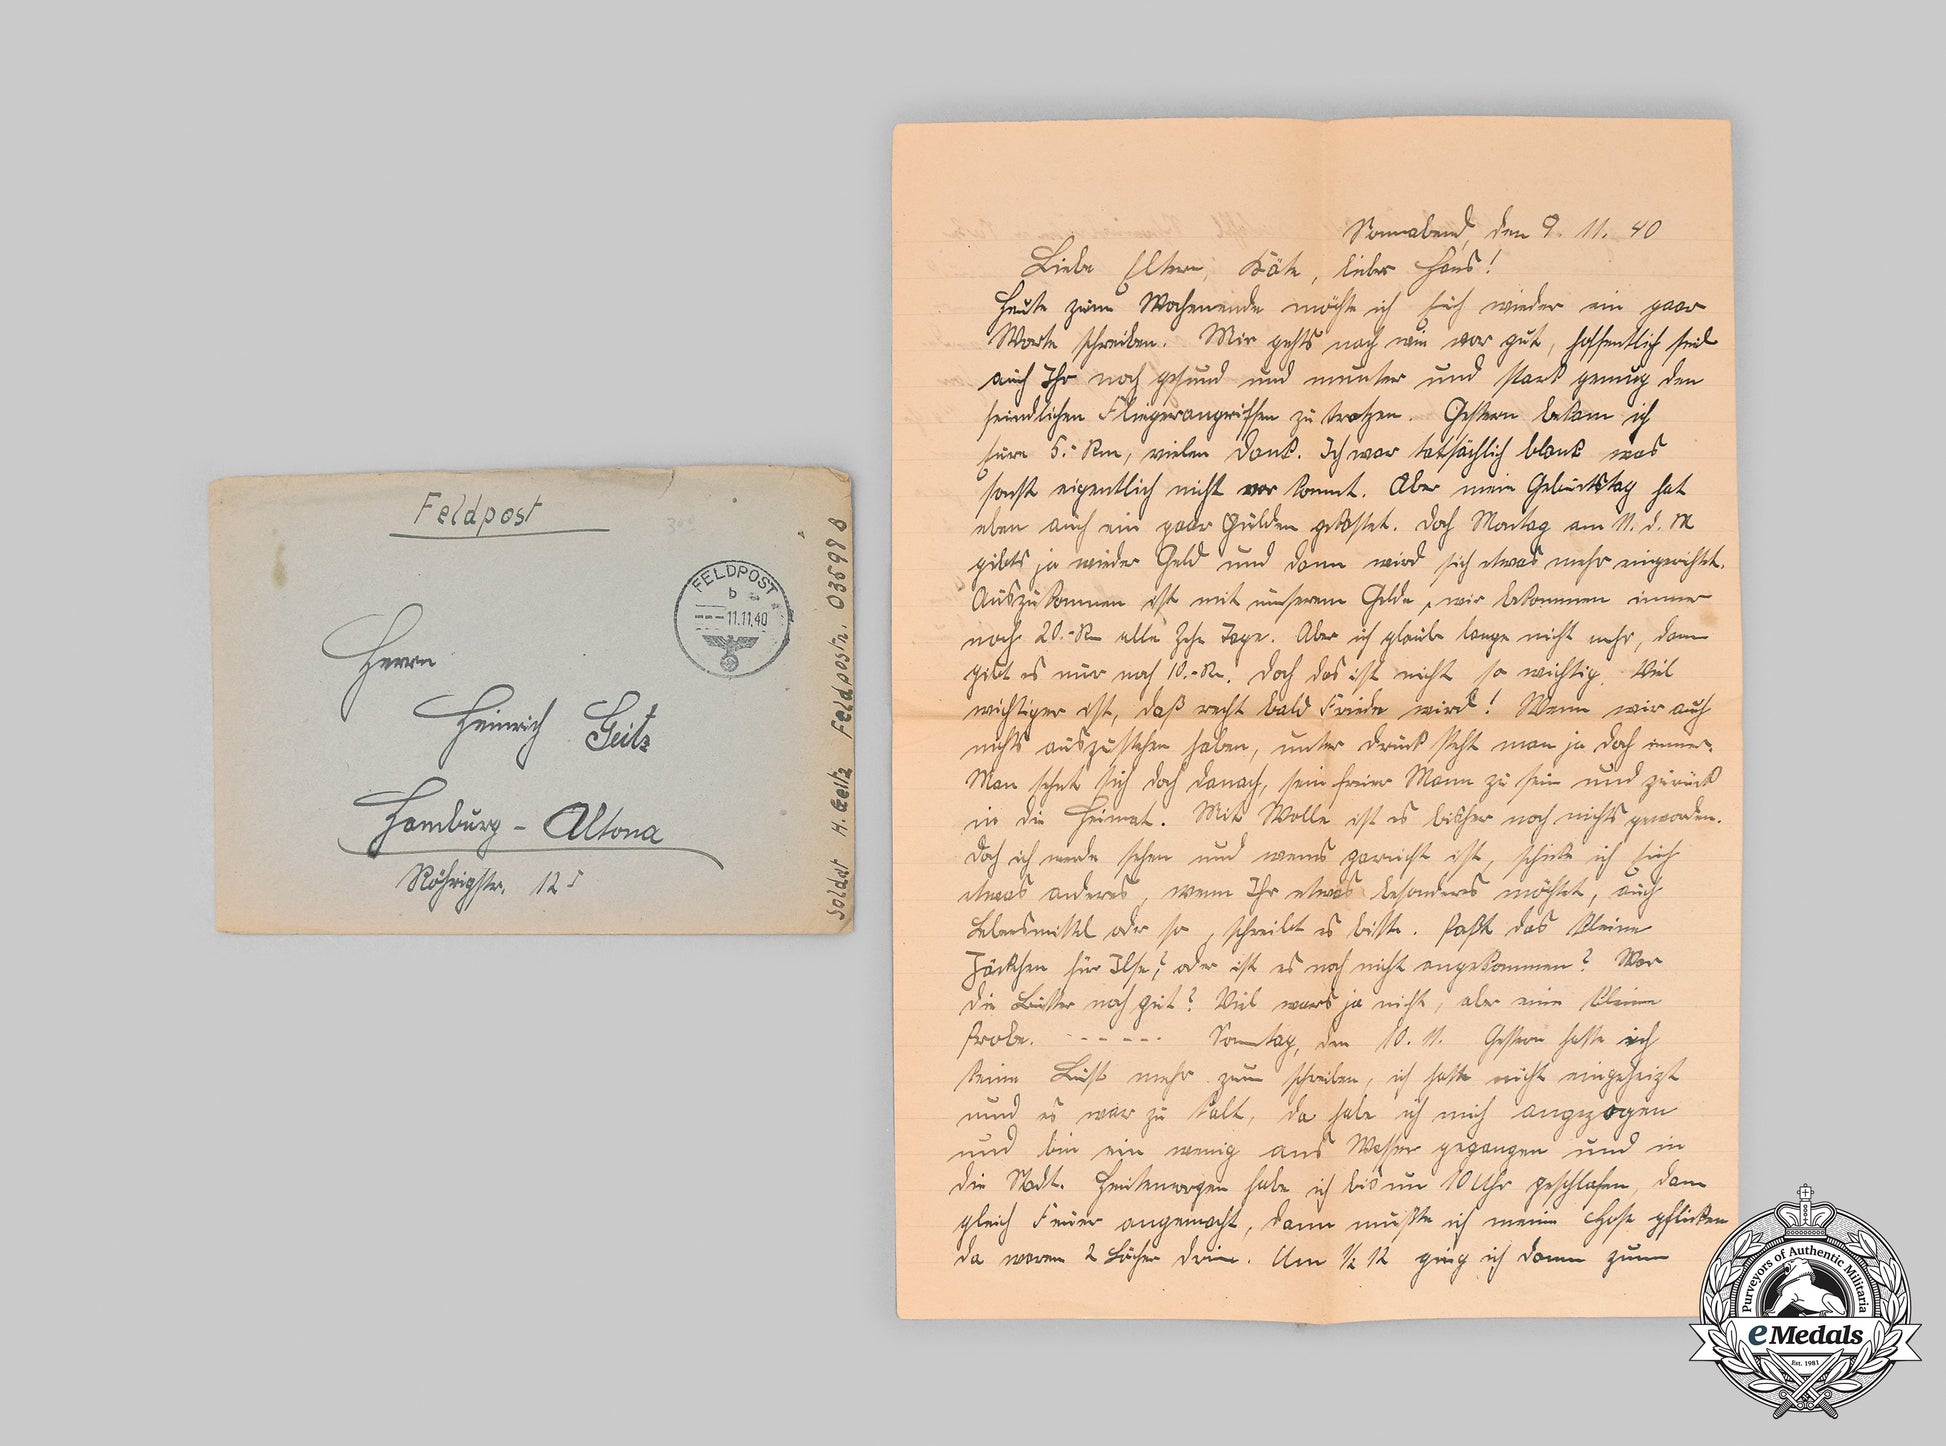 Feldpost
FELDPOST
b
11.11.40
Herrn
Heinrich Geitz
Hamburg - Altona
Röhrigstr. 12
Soldat H. Geitz Feldpostn. 03598 B
Sonnabend, den 9. 11. 40
Liebe Eltern, Käte, lieber Hans!
Heute zum Wochenende möchte ich Euch wieder ein paar
Worte schreiben. Mir gehts nach wie vor gut, hoffentlich seid
auch Ihr noch gesund und munter und stark genug den
feindlichen Fliegerangriffen zu trotzen. Gestern bekam ich
Eure 5.- Rm, vielen Dank. Ich war tatsächlich blank was
sonst eigentlich nicht vor kommt. Aber mein Geburtstag hat
eben auch ein paar Gulden gekostet. Doch Montag am 11. d. M
gibts ja wieder Geld und dann wird sich etwas mehr eingerichtet.
Auszukommen ist mit unserem Gelde, wir bekommen immer
noch 20.-Rm alle Zehn Tage. Aber ich glaube lange nicht mehr, dann
gibt es nur noch 10.-Rm. Doch das ist nicht so wichtig. Viel
wichtiger ist, daß recht bald Friede wird! Wenn wir auch
nichts auszustehen haben, unter Druck steht man ja doch immer.
Man sehnt sich doch danach, sein freier Mann zu sein und zurück
in die Heimat. Mit Wolle ist es bisher noch nichts geworden.
Doch ich werde sehen und wenns garnicht ist, schicke ich Euch
etwas anderes, wenn Ihr etwas besonderes möchtet, auch
Lebensmittel oder so, schreibt es bitte. Paßt das kleine
Jäckchen für Ilse? oder ist es noch nicht angekommen? War
die Butter noch gut? Viel wars ja nicht, aber eine kleine
Probe. - - - - - Sonntag, den 10. 11. Gestern hatte ich
keine Lust mehr zum schreiben, ich hatte nicht eingeheizt
und es war zu kalt, da habe ich mich angezogen
und bin ein wenig ans Wasser gegangen und in
die Stadt. Heutemorgen habe ich bis um 10 Uhr geschlafen, dann
gleich Feuer angemacht, dann mußte ich meine Hose pflicken
da waren 2 Löcher drinn. Um ½ 12 ging ich dann zum
Purveyors of Authentic Militaria
eMedals
Est. 1983